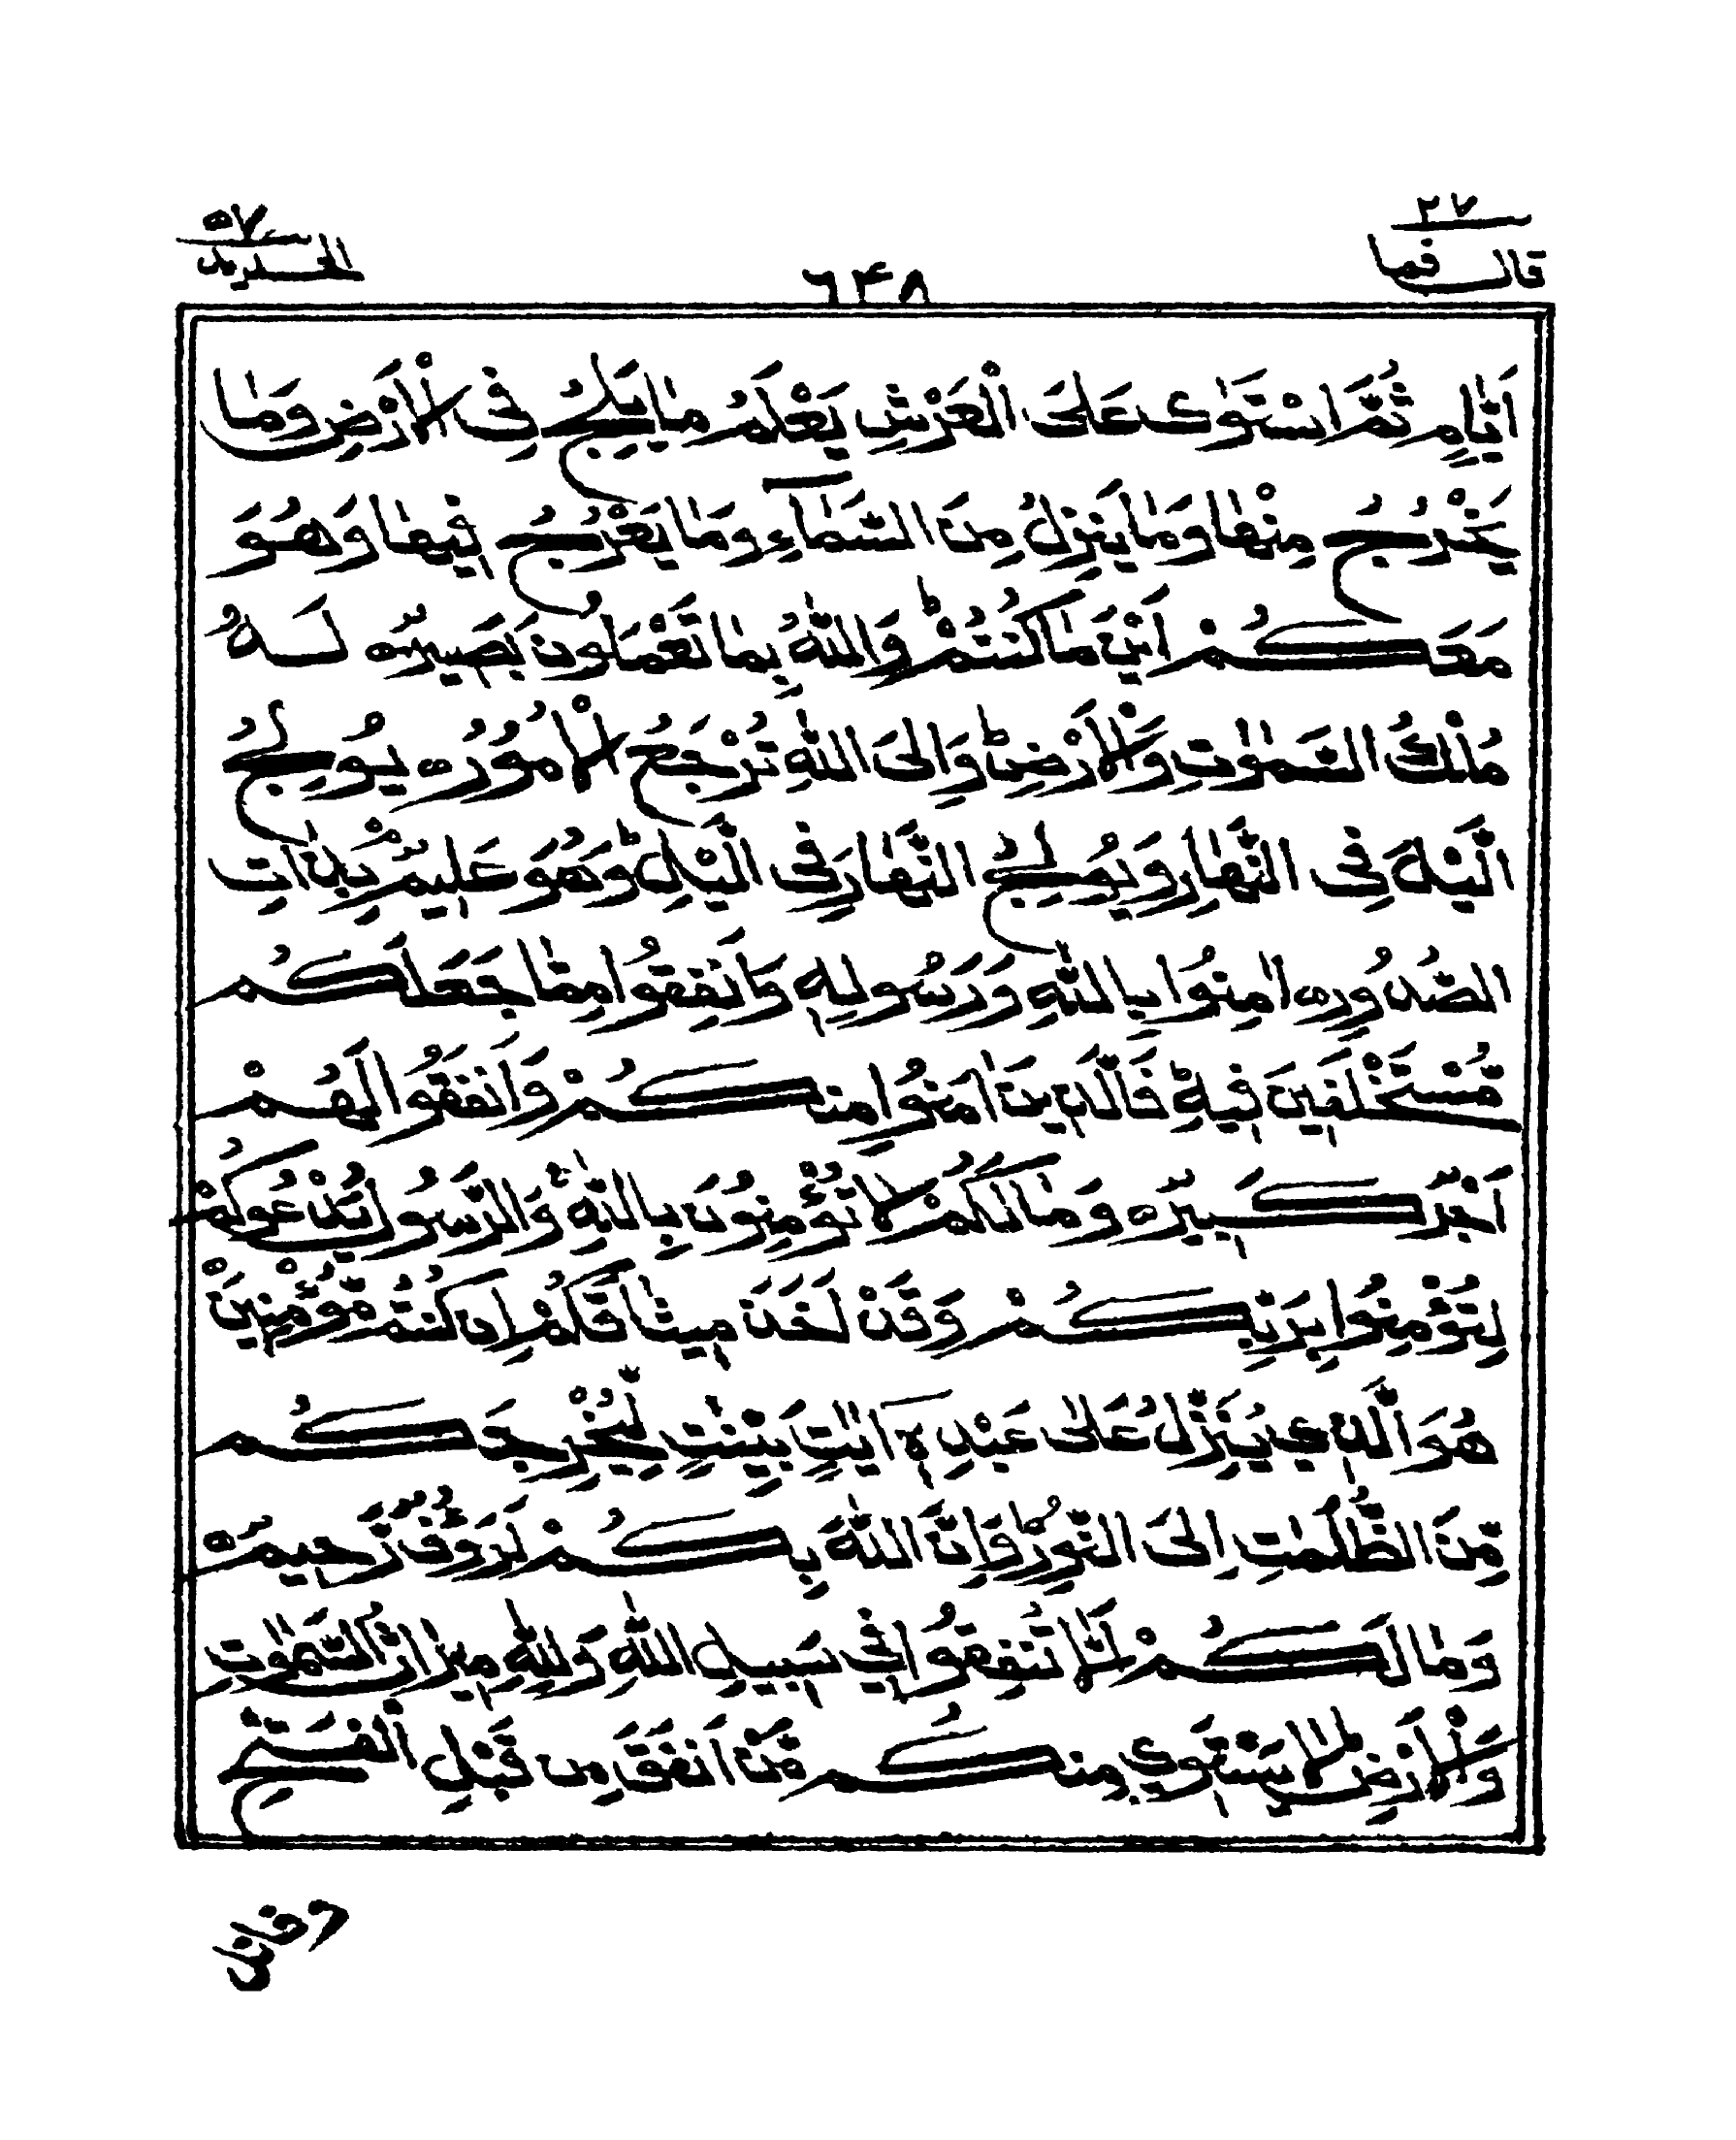 ٢٧
قال فما
٦٤٨
٥٧
الحديد
اَيَّامٍ ثُمَّ اسْتَوٰى عَلَى الْعَرْشِ يَعْلَمُ مَا يَلِجُ فِى الْاَرْضِ وَمَا
يَخْرُجُ مِنْهَا وَمَا يَنْزِلُ مِنَ السَّمَآءِ وَمَا يَعْرُجُ فِيْهَا وَهُوَ
مَعَكُمْ اَيْنَ مَا كُنْتُمْ ؕ وَاللّٰهُ بِمَا تَعْمَلُوْنَ بَصِيْرٌ ○ لَهٗ
مُلْكُ السَّمٰوٰتِ وَالْاَرْضِ ؕ وَاِلَى اللّٰهِ تُرْجَعُ الْاُمُوْرُ ○ يُوْلِجُ
الَّيْلَ فِى النَّهَارِ وَيُوْلِجُ النَّهَارَ فِى الَّيْلِ ؕ وَهُوَ عَلِيْمٌۢ بِذَاتِ
الصُّدُوْرِ ○ اٰمِنُوْا بِاللّٰهِ وَرَسُوْلِهٖ وَاَنْفِقُوْا مِمَّا جَعَلَكُمْ
مُّسْتَخْلَفِيْنَ فِيْهِ ؕ فَالَّذِيْنَ اٰمَنُوْا مِنْكُمْ وَاَنْفَقُوْا لَهُمْ
اَجْرٌ كَبِيْرٌ ○ وَمَا لَكُمْ لَا تُؤْمِنُوْنَ بِاللّٰهِ ۚ وَالرَّسُوْلُ يَدْعُوْكُمْ
لِتُؤْمِنُوْا بِرَبِّكُمْ وَقَدْ اَخَذَ مِيْثَاقَكُمْ اِنْ كُنْتُمْ مُّؤْمِنِيْنَ
هُوَ الَّذِيْ يُنَزِّلُ عَلٰى عَبْدِهٖۤ اٰيٰتٍۭ بَيِّنٰتٍ لِّيُخْرِجَكُمْ
مِّنَ الظُّلُمٰتِ اِلَى النُّوْرِ ؕ وَاِنَّ اللّٰهَ بِكُمْ لَرَءُوْفٌ رَّحِيْمٌ ○
وَمَا لَكُمْ اَلَّا تُنْفِقُوْا فِيْ سَبِيْلِ اللّٰهِ وَلِلّٰهِ مِيْرَاثُ السَّمٰوٰتِ
وَالْاَرْضِ ؕ لَا يَسْتَوِيْ مِنْكُمْ مَّنْ اَنْفَقَ مِنْ قَبْلِ الْفَتْحِ